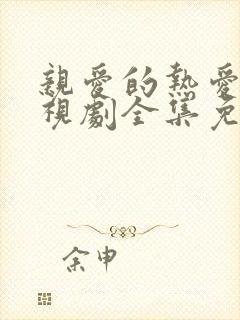 親愛的熱愛
視劇全集免
余申